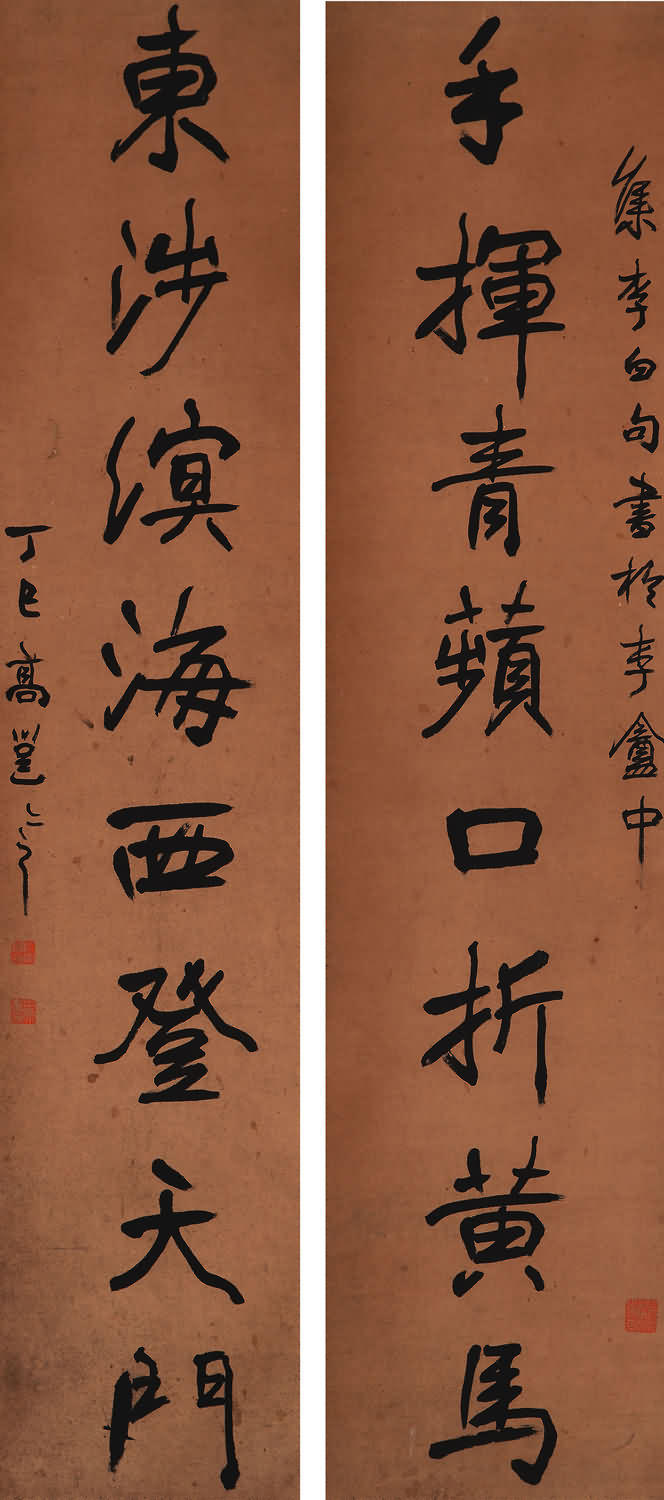 集李白句書於李盦中
手揮青蘋口折黄馬
東涉溟海西登天門
丁巳高邕